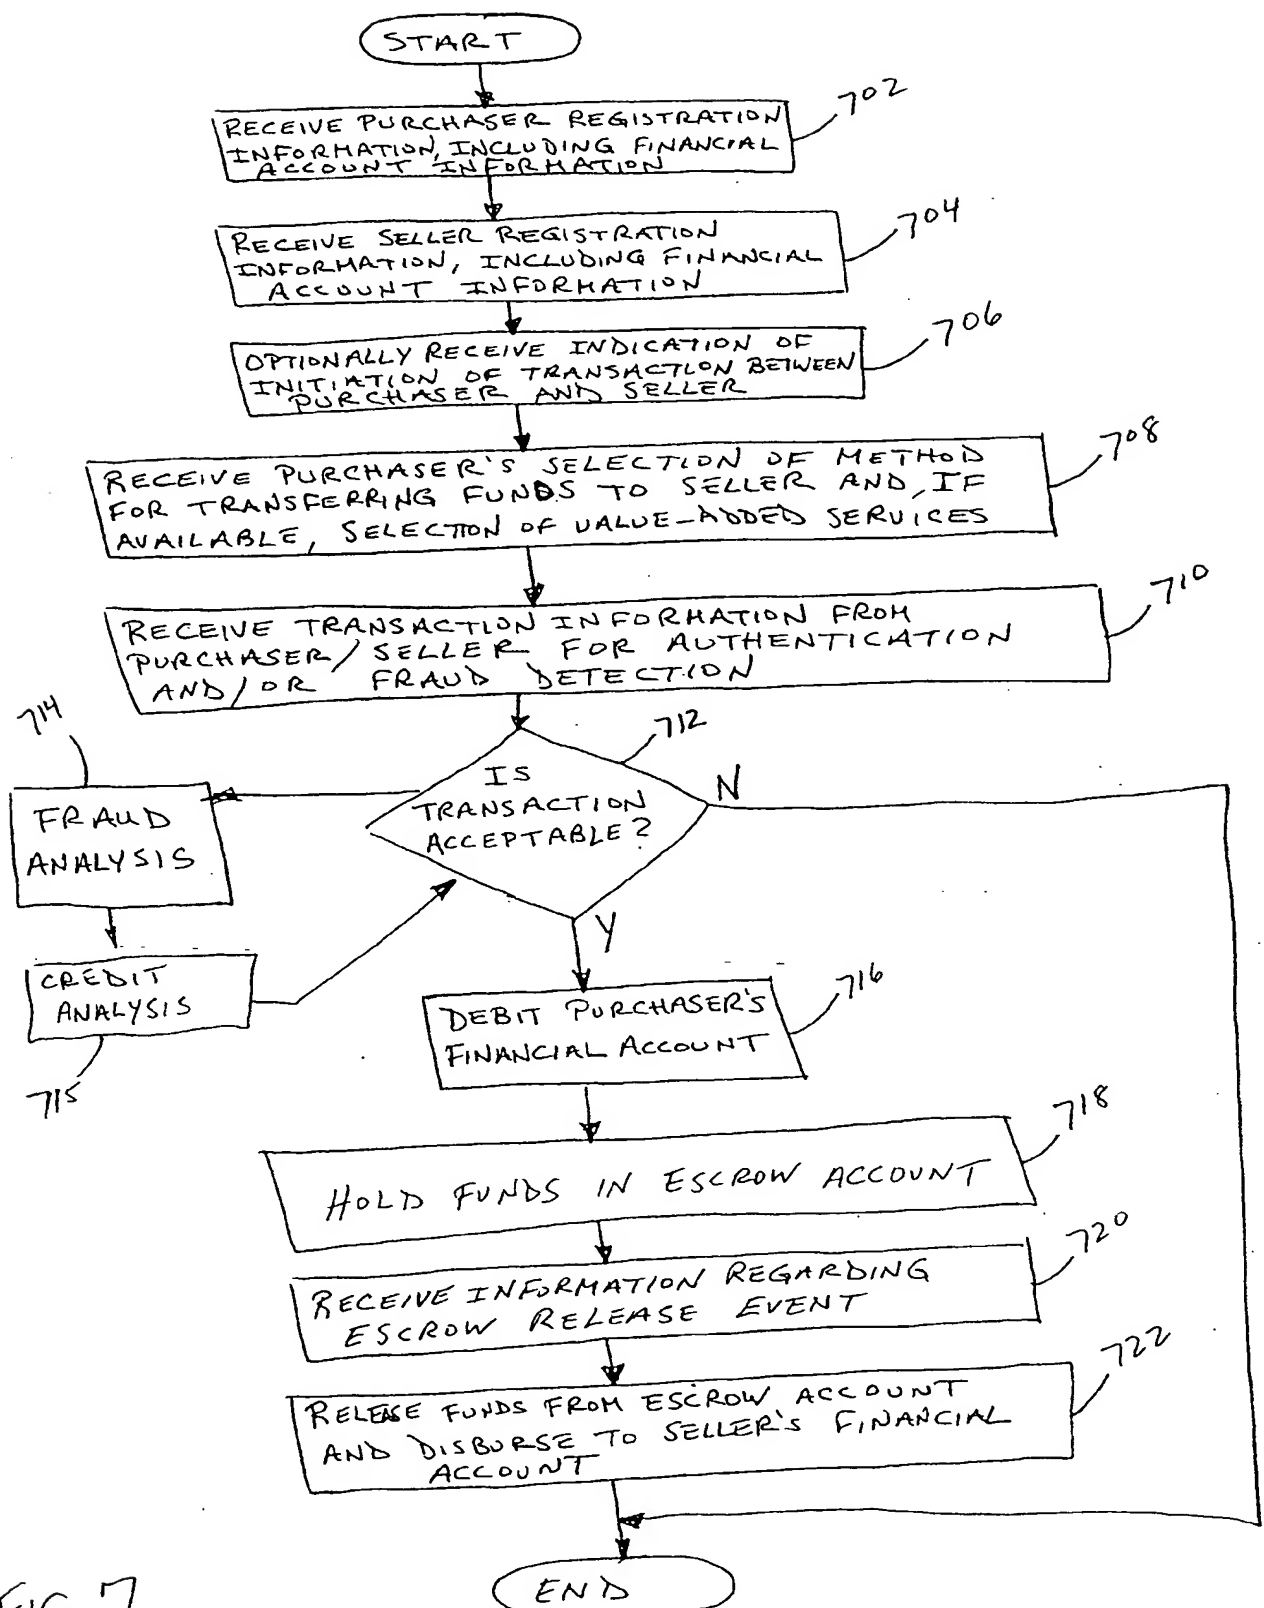 START
702
RECEIVE PURCHASER REGISTRATION
INFORMATION, INCLUDING FINANCIAL
ACCOUNT INFORMATION
704
RECEIVE SELLER REGISTRATION
INFORMATION, INCLUDING FINANCIAL
ACCOUNT INFORMATION
706
OPTIONALLY RECEIVE INDICATION OF
INITIATION OF TRANSACTION BETWEEN
PURCHASER AND SELLER
708
RECEIVE PURCHASER'S SELECTION OF METHOD
FOR TRANSFERRING FUNDS TO SELLER AND, IF
AVAILABLE, SELECTION OF VALUE-ADDED SERVICES
710
RECEIVE TRANSACTION INFORMATION FROM
PURCHASER/SELLER FOR AUTHENTICATION
AND/OR FRAUD DETECTION
712
IS
TRANSACTION
ACCEPTABLE?
N
Y
714
FRAUD
ANALYSIS
CREDIT
ANALYSIS
715
716
DEBIT PURCHASER'S
FINANCIAL ACCOUNT
718
HOLD FUNDS IN ESCROW ACCOUNT
720
RECEIVE INFORMATION REGARDING
ESCROW RELEASE EVENT
722
RELEASE FUNDS FROM ESCROW ACCOUNT
AND DISBURSE TO SELLER'S FINANCIAL
ACCOUNT
END
FIG. 7